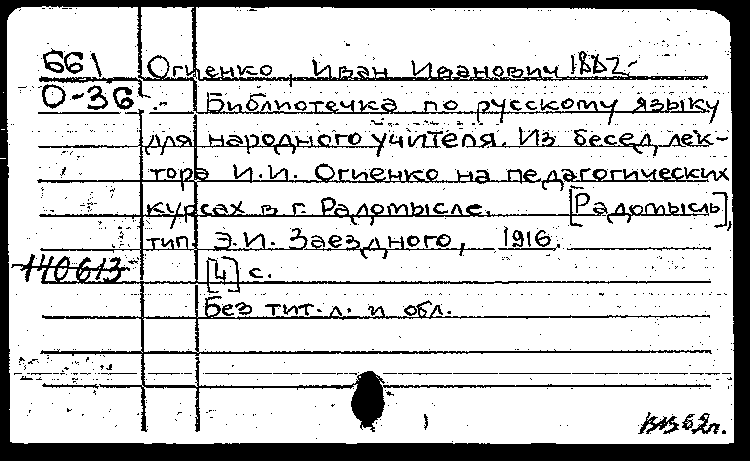 Б61 Огиенко, Иван Иванович 1882-
О-36 Библиотечка по русскому языку
для народного учителя. Из бесед лек-
тора И.И. Огиенко на педагогических
курсах в г. Радомысле. [Радомысль],
тип. Э.И. Заездного, 1916.
140613 [4] с.
Без тит. л. и обл.